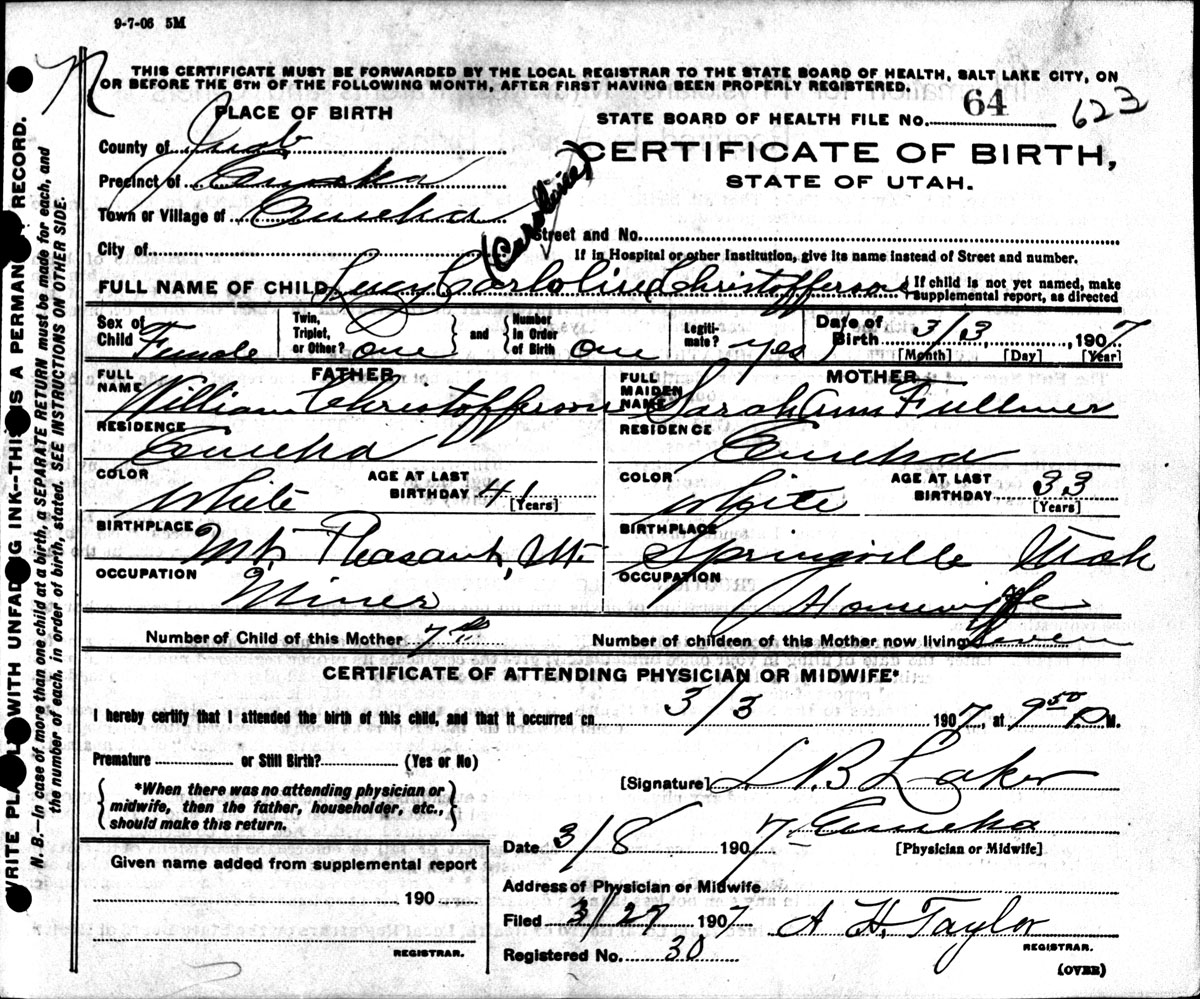 9-7-06 5M
THIS CERTIFICATE MUST BE FORWARDED BY THE LOCAL REGISTRAR TO THE STATE BOARD OF HEALTH, SALT LAKE CITY, ON
OR BEFORE THE 5TH OF THE FOLLOWING MONTH, AFTER FIRST HAVING BEEN PROPERLY REGISTERED.
PLACE OF BIRTH
STATE BOARD OF HEALTH FILE NO. 64 623
County of Juab
CERTIFICATE OF BIRTH,
STATE OF UTAH.
Precinct of Eureka
Town or Village of Eureka
Street and No.
City of
If in Hospital or other Institution, give its name instead of Street and number.
(Caroline)
FULL NAME OF CHILD Lucy Carboline Christofferson { If child is not yet named, make
supplemental report, as directed
Sex of Child Female
Twin, Triplet, or Other? one } and { Number in Order of Birth one
Legitimate? yes
Date of Birth 3/3, 1907
[Month] [Day] [Year]
FATHER
FULL NAME William Christofferson
RESIDENCE Eureka
COLOR White AGE AT LAST BIRTHDAY 41
[Years]
BIRTHPLACE Mt. Pleasant, Ut.
OCCUPATION Miner
MOTHER
FULL MAIDEN NAME Sarah Ann Fullmer
RESIDENCE Eureka
COLOR White AGE AT LAST BIRTHDAY 33
[Years]
BIRTHPLACE Springville Utah
OCCUPATION Housewife
Number of Child of this Mother 7th Number of children of this Mother now living Seven
CERTIFICATE OF ATTENDING PHYSICIAN OR MIDWIFE*
I hereby certify that I attended the birth of this child, and that it occurred on 3/3 1907, at 9 50 P.M.
Premature or Still Birth? (Yes or No)
{ *When there was no attending physician or
midwife, then the father, householder, etc.,
should make this return. }
[Signature] B Laker
Eureka
Date 3/8 1907 [Physician or Midwife]
Given name added from supplemental report
190
REGISTRAR.
Address of Physician or Midwife
Filed 3/27 1907 A H. Taylor
REGISTRAR.
Registered No. 30
(OVER)
WRITE PLAINLY WITH UNFADING INK--THIS IS A PERMANENT RECORD.
N. B.—In case of more than one child at a birth, a SEPARATE RETURN must be made for each, and
the number of each, in order of birth, stated. SEE INSTRUCTIONS ON OTHER SIDE.